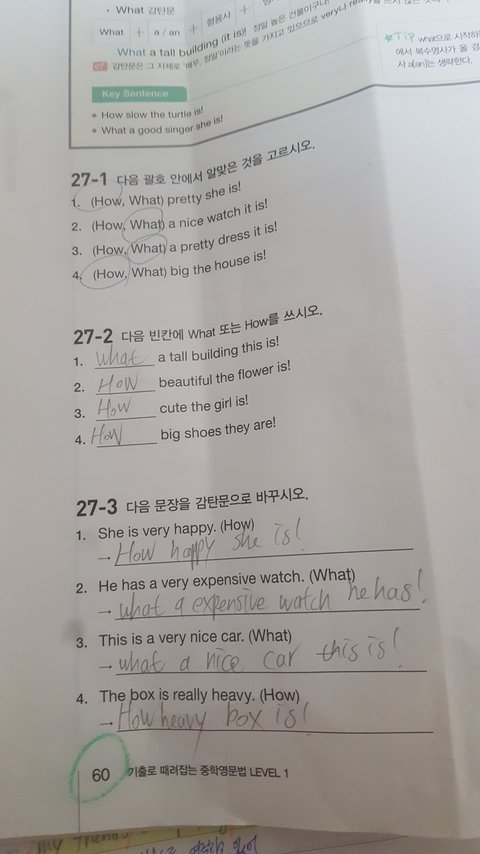 • What 감탄문
What + a / an + 형용사 +
What a tall building (it is)! 정말 높은 건물이구나!
감탄문은 그 자체로 '매우, 정말'이라는 뜻을 가지고 있으므로 very나
TIP what으로 시작하
에서 복수명사가 올 경
사 a(an)는 생략한다.
Key Sentence
• How slow the turtle is!
• What a good singer she is!
27-1 다음 괄호 안에서 알맞은 것을 고르시오.
1. (How, What) pretty she is!
2. (How, What) a nice watch it is!
3. (How, What) a pretty dress it is!
4. (How, What) big the house is!
27-2 다음 빈칸에 What 또는 How를 쓰시오.
1. what a tall building this is!
2. How beautiful the flower is!
3. How cute the girl is!
4. How big shoes they are!
27-3 다음 문장을 감탄문으로 바꾸시오.
1. She is very happy. (How)
→ How happy she is!
2. He has a very expensive watch. (What)
→ what a expensive watch he has!
3. This is a very nice car. (What)
→ what a nice car this is!
4. The box is really heavy. (How)
→ How heavy box is!
60 기출로 때려잡는 중학영문법 LEVEL 1
my